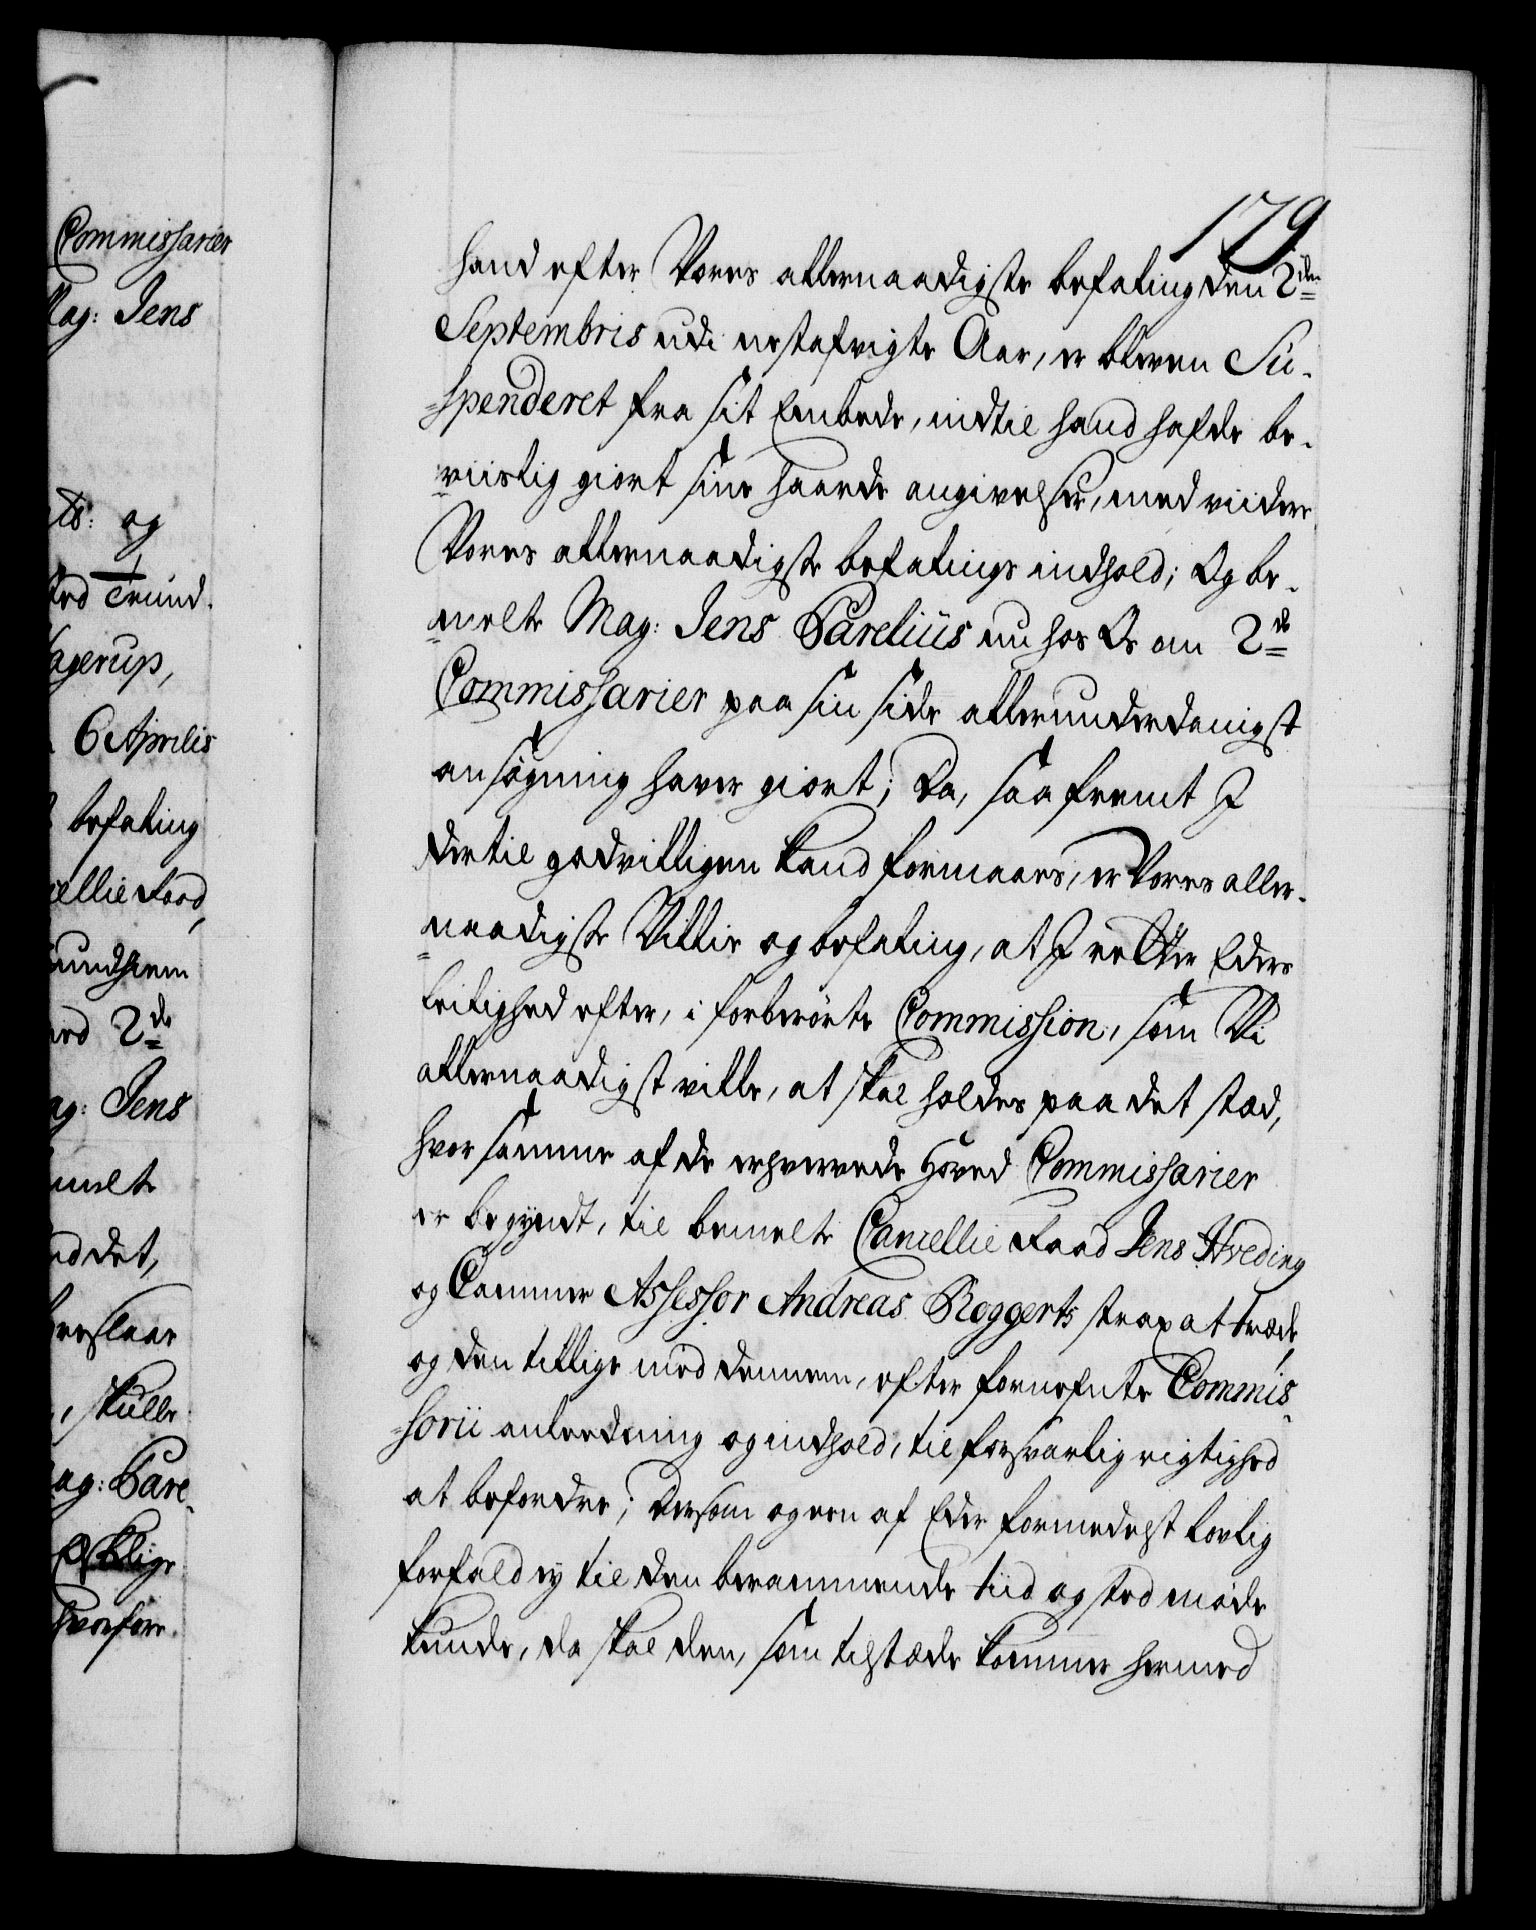 Commissarier
Mag: Jens
og
Trund-
Hagerup,
6 Aprilis
befaling
Cancellie Raad
Trundhiem
2de
Mag: Jens
melte
det,
foreslaar
, skulle
Mag: Pare-
hvorfore
179
hand efter Vores allernaadigste befaling den 2den
Septembris udi nestafvigte Aar, er bleven Su-
spenderet fra sit Embede, indtil hand hafde be-
viislig giort sine haarde angivelser, med viidere
Vores allernaadigste befalings indhold; Og be-
melte Mag: Jens Parelius nu hos Os om 2de
Commissarier paa sin side allerunderdanigst
ansøgning haver giort; Da, saafremt I
dertil godvilligen kand formaaes, er Vores aller-
naadigste Villie og befaling, at I retter Eders
leilighed efter, i forberørte Commission, som Vi
allernaadigst ville, at skal holdes paa det sted,
hvor samme af de ergverede Hoved Commissarier
er begyndt, til bemelte Cancellie Raad Jens Hveding
og Cammer Assessor Andreas Roggerts strax at træde,
og den tillige med dennem, efter fornefnte Commis-
sorii anledning og indhold, til forsvarlig rigtighed
at befordre; Dersom og een af Eder formedelst lovlig
forfald ey til den berammende tiid og sted møde
kunde, da skal den, som tilstæde kommer hermed